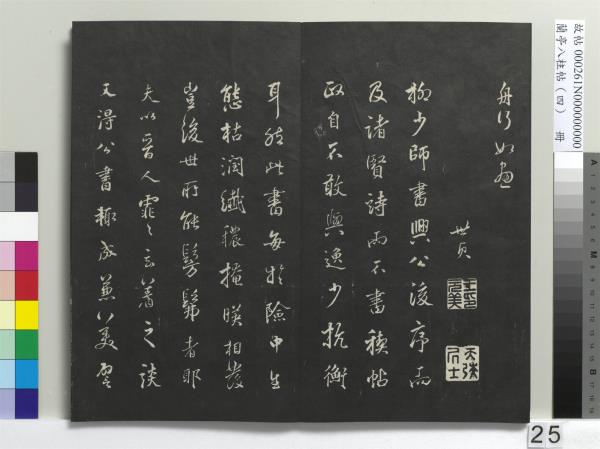 故帖 000261N000000000
蘭亭八柱帖（四） 冊
舟行
世貞
王印元美
天弢居士
柳少師書興公後序而
及諸賢詩而不書稧帖
政自不敢與逸少抗衡
耳然此書每於險中生
態枯潤纖穠掩映相發
豈後世所能髣髴者耶
夫以晉人霏霏玄著之談
又得公書成兼美
25